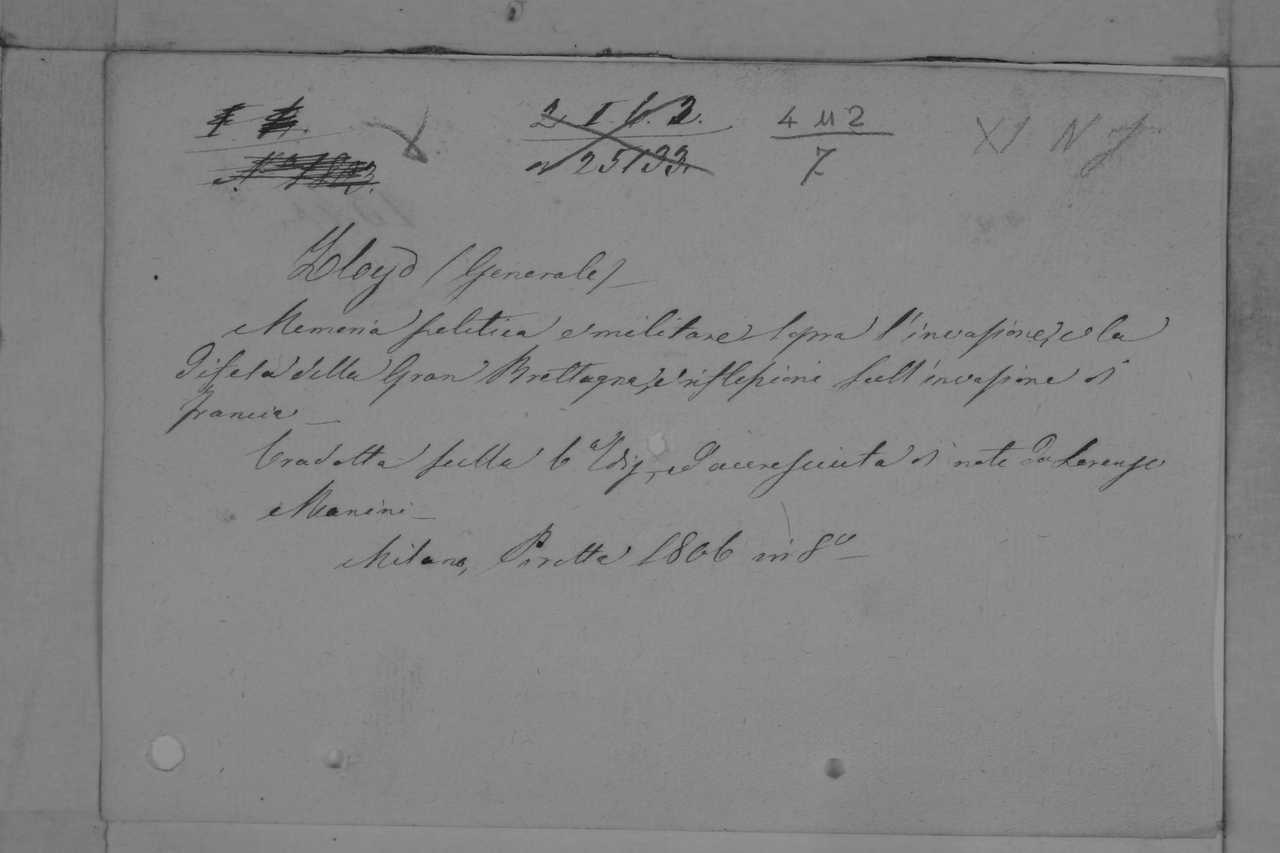 2 I. 6. 2. 4 U 2 XI N J
n 25133. 7
Lloyd (Generale)
Memoria politica e militare sopra l'invasione, e la
difesa della Gran Brettagna, e riflessioni sull'invasione di
Francia
Tradotta sulla 6ª Ediz. ed accresciuta di note da Lorenzo
Manini
Milano, Pirotta 1806 in 8º